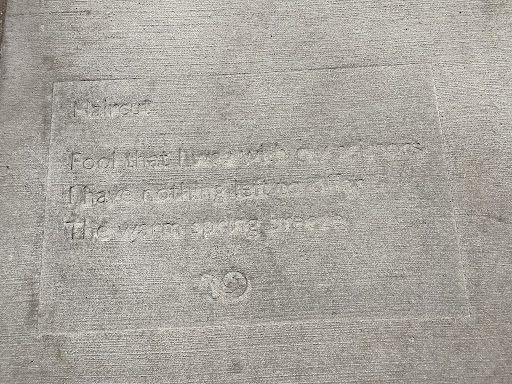 Haircut
Fool that I was with my scissors
I have nothing left to offer
The warm spring breeze